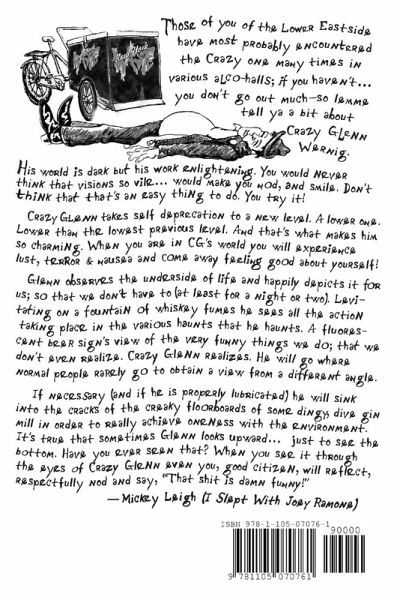 Those of you of the Lower Eastside
have most probably encountered
the Crazy one many times in
various alco-halls; if you haven't...
you don't go out much—so lemme
tell ya a bit about
Crazy Glenn
Wernig.
His world is dark but his work enlightening. You would never
think that visions so vile... would make you nod, and smile. Don't
think that that's an easy thing to do. You try it!
Crazy Glenn takes self deprecation to a new level. A lower one.
Lower than the lowest previous level. And that's what makes him
so charming. When you are in CG's world you will experience
lust, terror & nausea and come away feeling good about yourself!
Glenn observes the underside of life and happily depicts it for
us; so that we don't have to (at least for a night or two). Levi-
tating on a fountain of whiskey fumes he sees all the action
taking place in the various haunts that he haunts. A fluores-
cent beer sign's view of the very funny things we do; that we
don't even realize. Crazy Glenn realizes. He will go where
normal people rarely go to obtain a view from a different angle.
If necessary (and if he is properly lubricated) he will sink
into the cracks of the creaky floorboards of some dingy, dive gin
mill in order to really achieve oneness with the environment.
It's true that sometimes Glenn looks upward... just to see the
bottom. Have you ever seen that? When you see it through
the eyes of Crazy Glenn even you, good citizen, will reflect,
respectfully nod and say, "That shit is damn funny!"
—Mickey Leigh (I Slept With Joey Ramone)
ISBN 978-1-105-07076-1
90000
9 781105 070761